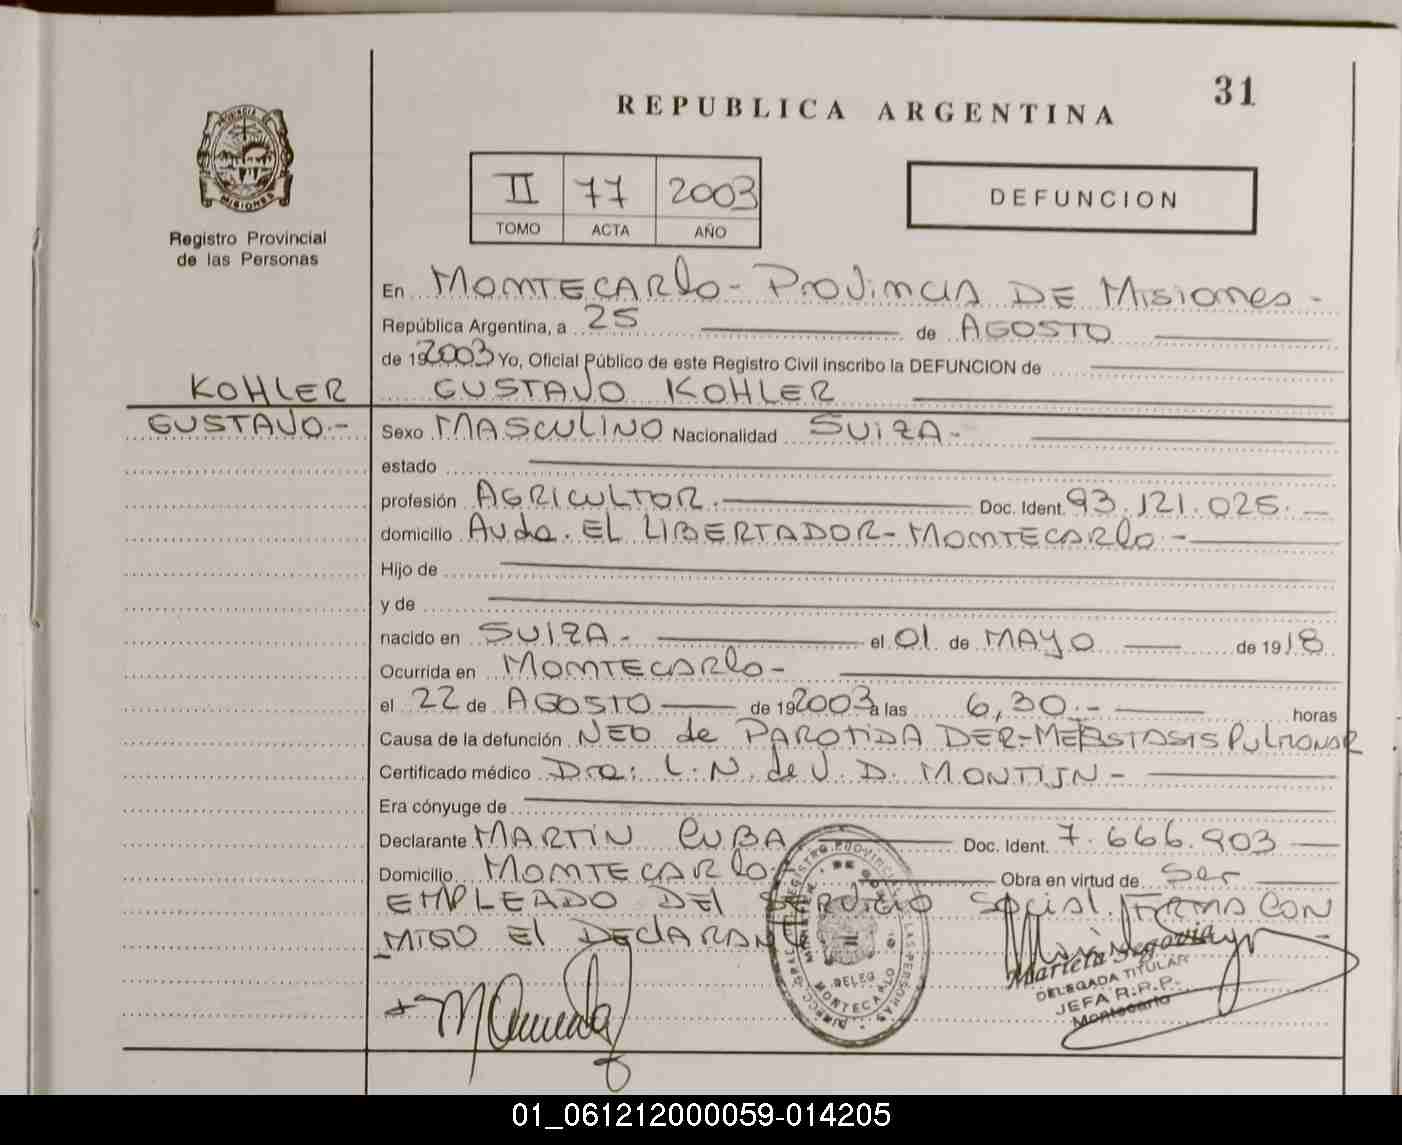 31
REPUBLICA ARGENTINA
II 77 2003
TOMO ACTA AÑO
DEFUNCION
MISIONES
Registro Provincial
de las Personas
En MONTECARLO - PROVINCIA DE MISIONES -
República Argentina, a 25 de AGOSTO
de 192003 Yo, Oficial Público de este Registro Civil inscribo la DEFUNCION de
KOHLER GUSTAVO KOHLER
GUSTAVO - Sexo MASCULINO Nacionalidad SUIZA -
estado
profesión AGRICULTOR. Doc. Ident. 93.121.025. -
domicilio Avda. EL LIBERTADOR - MONTECARLO -
Hijo de
y de
nacido en SUIZA - el 01 de MAYO de 1918
Ocurrida en MONTECARLO -
el 22 de AGOSTO de 192003 a las 6,30 - horas
Causa de la defunción NEO de PAROTIDA DER - METASTASIS PULMONAR
Certificado médico Dra: L. N. de V. D. MONTIJN -
Era cónyuge de
Declarante MARTIN CUBA Doc. Ident. 7.666.903
Domicilio MONTECARLO Obra en virtud de Ser
EMPLEADO DEL SERVICIO SOCIAL. FIRMA CON
MIGO EL DECLARANTE
DELEG.
MONTECARLO
Mariela Segovia
DELEGADA TITULAR
JEFA R.R.P.
Montecarlo
01_061212000059-014205